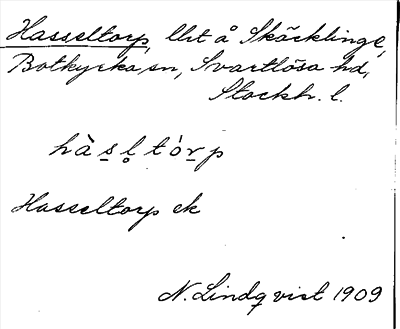 Hasseltorp, lht å Skäcklinge,
Botkyrka sn, Svartlösa hd,
Stockh. l.
hàs̲l̥tór̲p
Hasseltorp ek
N. Lindqvist 1909